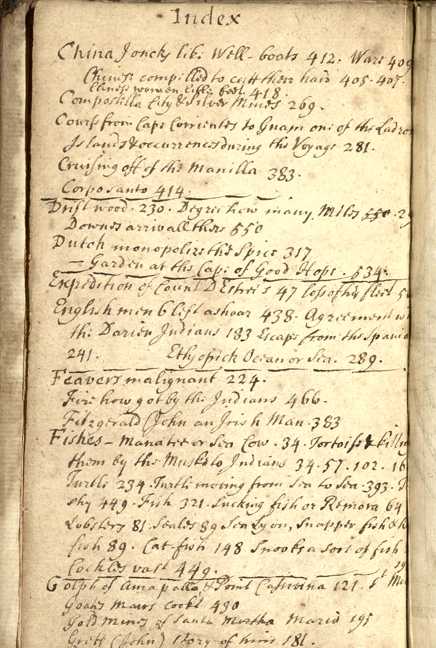 Index
China Joncks like Well-boats 412. Ware 409
Chinese compelled to cutt their hair 405. 407.
Chinese women little feet 418.
Compostilla City & Silver Mines 269.
Course from Cape Corrientes to Guam one of the Ladron
Islands & occurrences during the Voyage 281.
Cruising off of the Manilla 383.
Corposanto 414.
Drift wood. 230. Degree how many Miles 550. 29
Downes arrivall there 550
Dutch monopolize the Spice 317
— Garden at the Cape of Good Hope. 534.
Expedition of Count D'Estrees 47 loss of his fleet 50
English men 6 left ashoar 438. Agreement wth
the Darien Indians 183 Escape from the Spania
241. Ethyopick Ocean or Sea. 289.
Feavers malignant 224.
Fire how got by the Indians 466.
Fitzgerald John an Irish Man. 383
Fishes — Manatee or Sea Cow. 34. Tortoise & killing
them by the Muskito Indians 34. 57. 102. 16
Turtle 234. Turtle moving from Sea to Sea. 393. T
449. Fish 321. Sucking fish or Remora 64
Lobsters 81. Seales 89 Sea Lyon, Snapper fish &
fish 89. Cat-fish 148 Snooks a sort of fish
Cockles vast 449.
Golph of Amapalla & Point Casivina 121.
Goans Mavs Cocks 490
Gold Mines of Santa Martha Maria 195
Grett (John) Story of him 181.